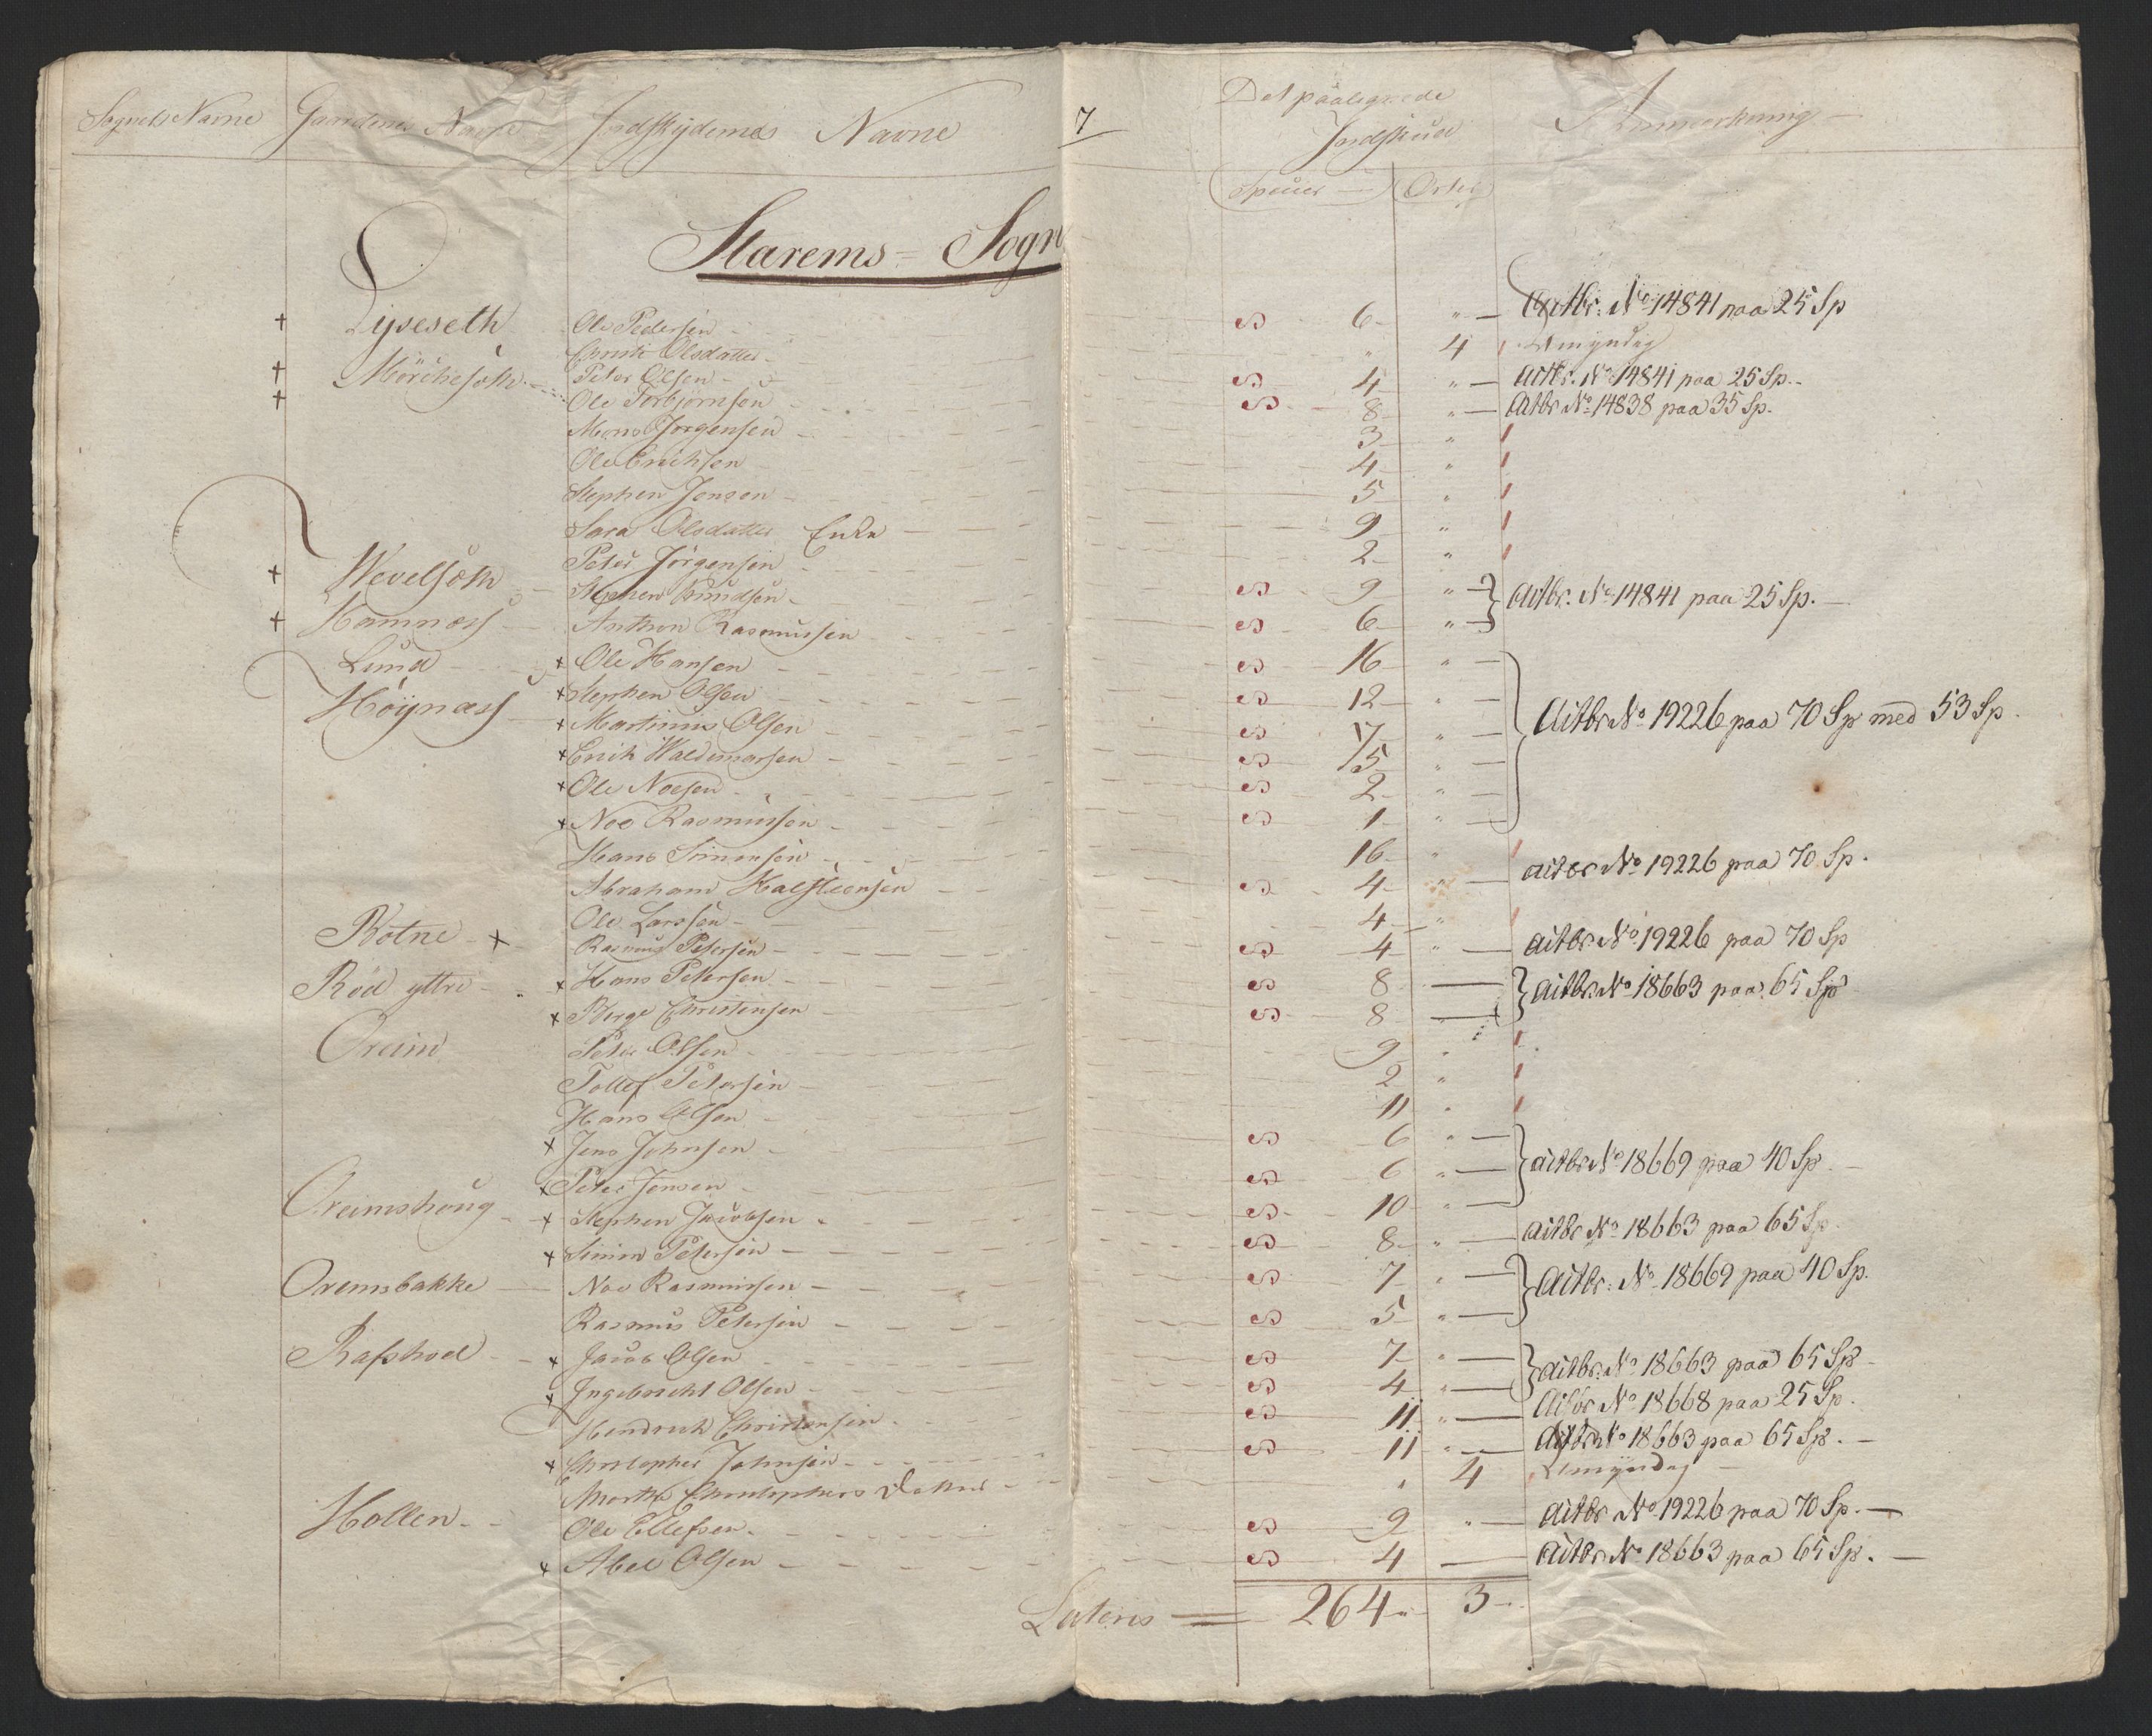 Sognets Navne Gaardenes Navne Jordskydernes Navne 7 Det paalignede Jordskud Anmerkning
Specier Orter
Starems Sogn
+ Lyseseth Ole Pedersen S 6 " Actbr. No 14841 paa 25 Sp
Christi Olsdatter " 4
+ Mörchesæth Peter Olsen S 4 " Actbr. No 14841 paa 25 Sp.
+ Ole Torbjørnsen S 8 " Actbr No 14838 paa 35 Sp.
Mons Jørgensen 3 "
Ole Erichsen 4 "
Stephen Jonsen 5 "
Sara Olsdatter Enke 9 "
Peter Jörgensen 2 "
+ Wevelsæth Stephen Knudsen S 9 " Actbr. No 14841 paa 25 Sp.
+ Hamnæss Anthon Rasmussen S 6 "
Lund + Ole Hansen S 16 "
Höÿnæss + Stephen Olsen S 12 "
+ Martinus Olsen S 7 " Actbr No 19226 paa 70 Sp med 53 Sp.
+ Erich Waldemarsen S 15 "
+ Ole Noesen S 2 "
+ Noe Rasmussen S 1 "
Hans Simensen 16 "
Abraham Halsteensen S 4 " actbr No 19226 paa 70 Sp.
Ole Larssen 4 "
Rötne + Rasmus Petersen S 4 " actbr No 19226 paa 70 Sp
Röd yttre + Hans Petersen S 8 actbr No 18663 paa 65 Sp
+ Børge Christensen S 8 "
Oreim Peter Olsen 9 "
Tollef Petersen 2 "
Hans Olsen 11 "
+ Jens Johnsen S 6 " actbr No 18669 paa 40 Sp.
+ Peter Jensen S 6 "
Oreimshoug + Stephen Jacobsen S 10 "
+ Simon Petersen S 8 " actbr No 18663 paa 65 Sp.
Oremsbakke Noe Rasmussen S 7 " Actbr. No 18669 paa 40 Sp.
Rasmus Petersen S 5 "
Rafshoel + Jacob Olsen S 7 " actbr. No 18663 paa 65 Sp
+ Ingebrecht Olsen S 4 "
Hendrich Christensen S 11 " Actbr No 18668 paa 25 Sp.
+ Christopher Johnsen S 11 " Actbr No 18663 paa 65 Sp.
Marthe Christophers Datter " 4
Hollen Ole Ellefsen S 9 " actbr No 19226 paa 70 Sp.
+ Abel Olsen S 4 Actbr No 18663 paa 65 Sp.
Lateris 264 " 3